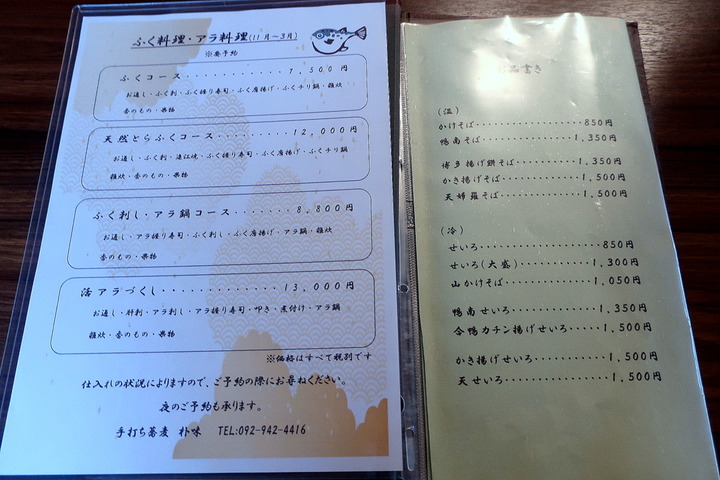 ふく料理・アラ料理(11月~3月)
※要予約
ふくコース・・・・・・・・・・・・7,500円
お通し・ふく刺・ふく握り寿司・ふく唐揚げ・ふくチリ鍋・雑炊
香のもの・果物
天然とらふくコース・・・・・・・・12,000円
お通し・ふく刺・湯江焼・ふく握り寿司・ふく唐揚げ・ふくチリ鍋
雑炊・香のもの・果物
ふく刺し・アラ鍋コース・・・・・・8,800円
お通し・アラ握り寿司・ふく刺し・ふく唐揚げ・アラ鍋・雑炊
香のもの・果物
活アラづくし・・・・・・・・・・・・13,000円
お通し・肝刺・アラ刺し・アラ握り寿司・叩き・煮付け・アラ鍋
雑炊・香のもの・果物
※価格はすべて税別です
仕入れの状況によりますので、ご予約の際にお尋ねください。
夜のご予約も承ります。
手打ち蕎麦 朴味 TEL:092-942-4416
品書き
(温)
かけそば・・・・・・・・・・・・・・・・850円
鴨南そば・・・・・・・・・・・・・・1,350円
博多揚げ餅そば・・・・・・・・・・1,350円
かき揚げそば・・・・・・・・・・・・1,500円
天婦羅そば・・・・・・・・・・・・・1,500円
(冷)
せいろ・・・・・・・・・・・・・・・・・・850円
せいろ(大盛)・・・・・・・・・・・1,300円
山かけそば・・・・・・・・・・・・・1,050円
鴨南せいろ・・・・・・・・・・・・・1,350円
合鴨カチン揚げせいろ・・・・・1,500円
かき揚げせいろ・・・・・・・・・・1,500円
天せいろ・・・・・・・・・・・・・・・1,500円